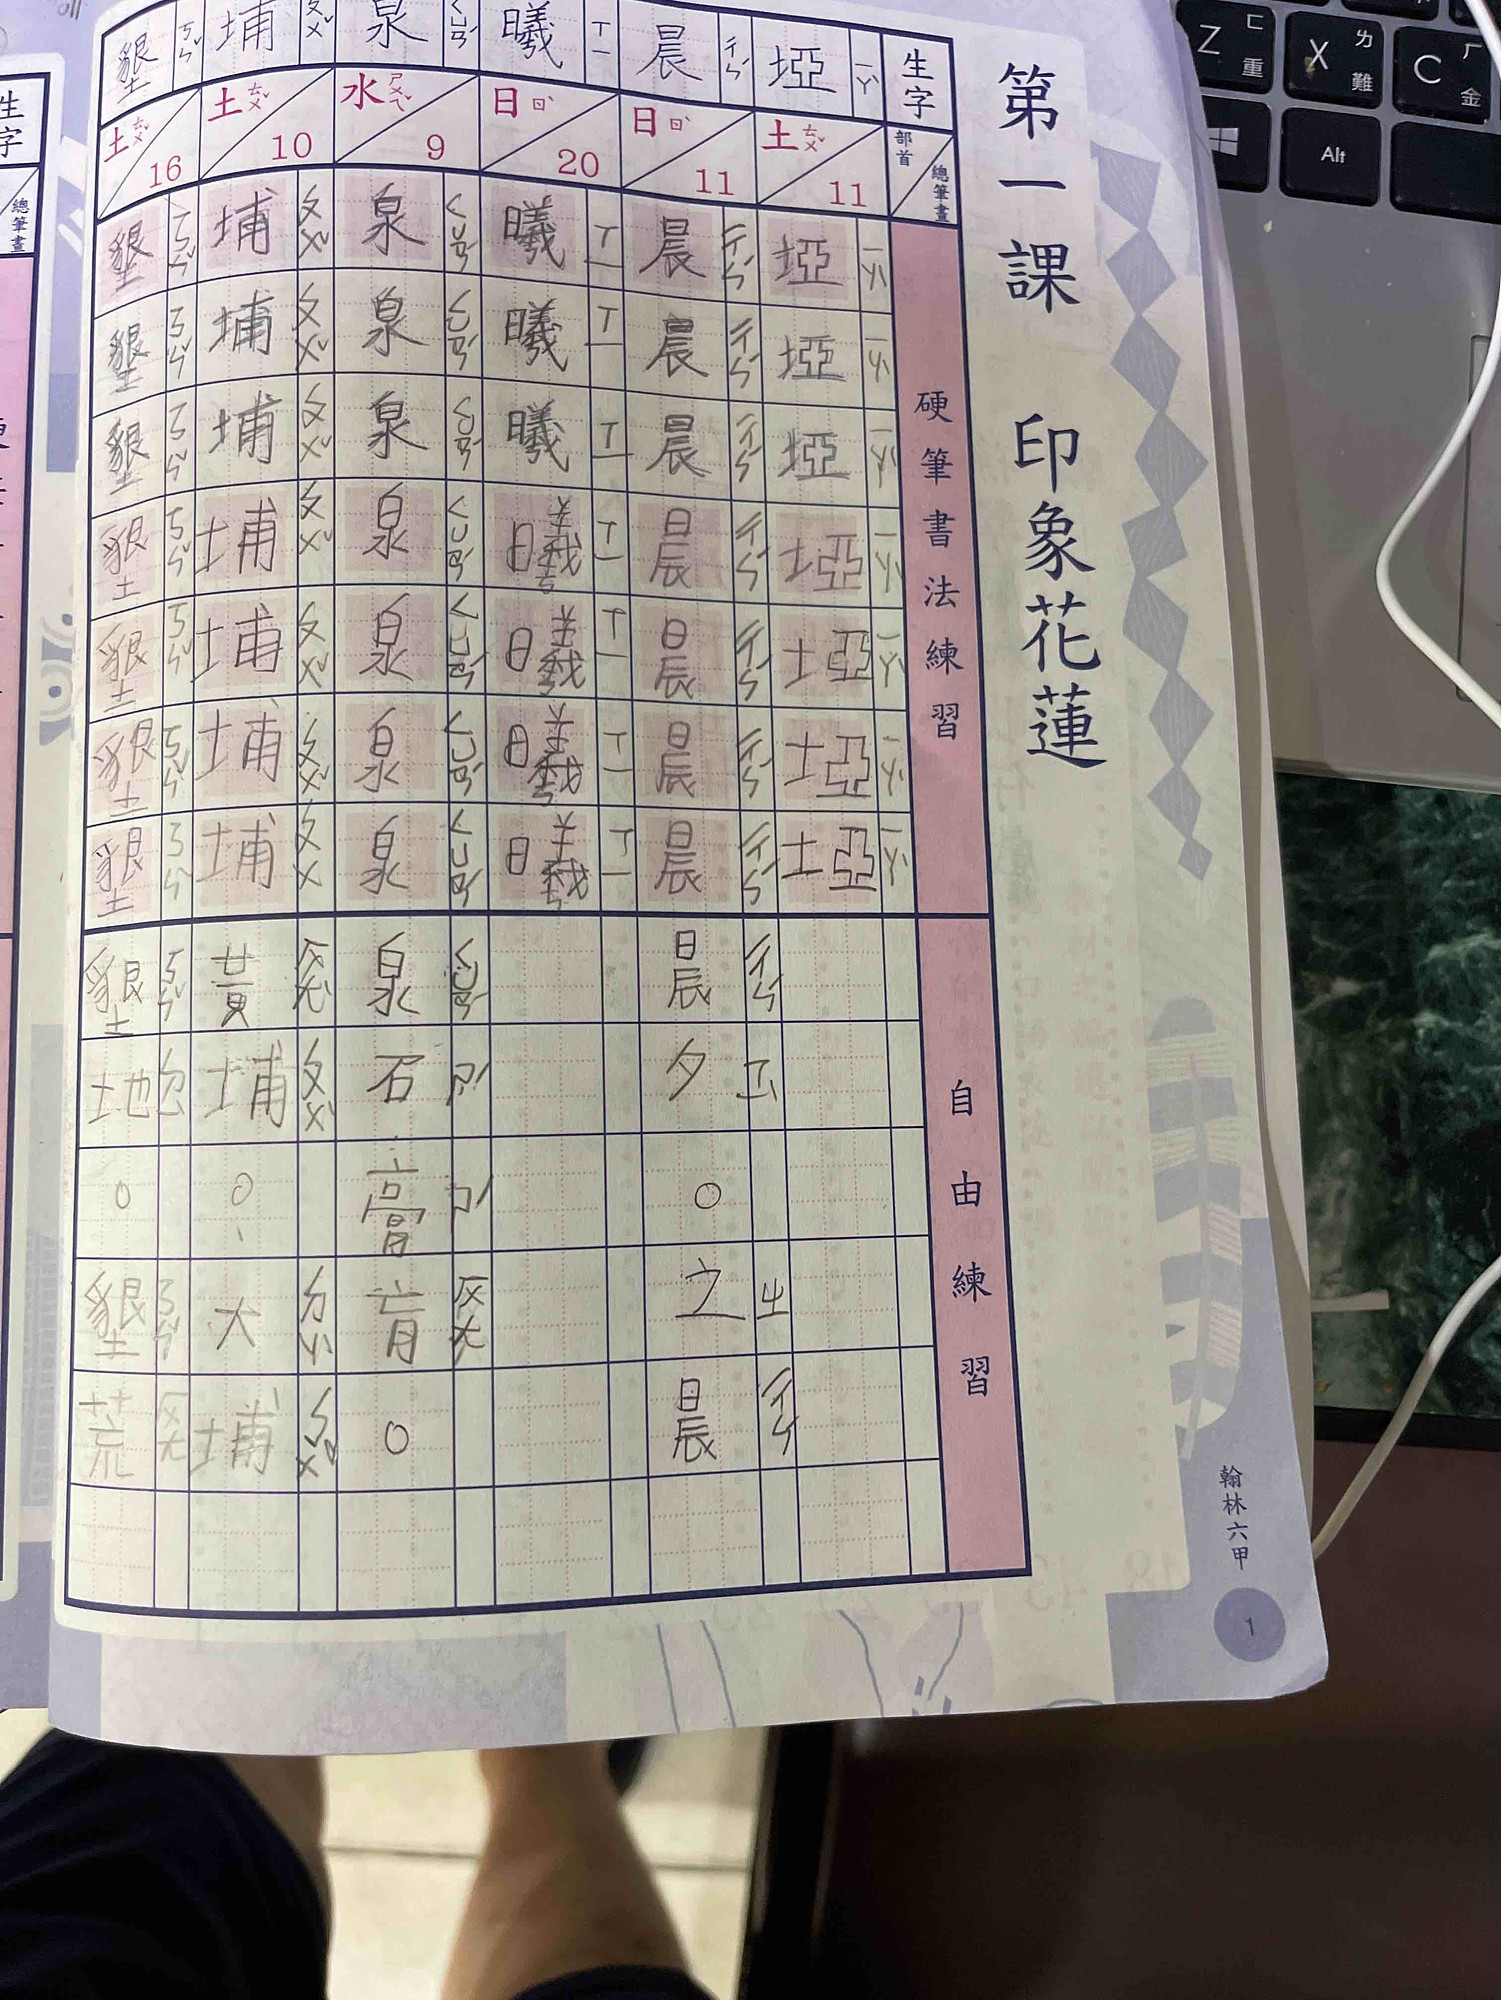 第一課 印象花蓮
生字
部首 總筆畫
硬筆書法練習
自由練習
埡 ㄧㄚˋ
土 ㄊㄨˇ 11
埡 ㄧㄚˋ
埡 ㄧㄚˋ
埡 ㄧㄚˋ
埡 ㄧㄚˋ
埡 ㄧㄚˋ
埡 ㄧㄚˋ
埡 ㄧㄚˋ
晨 ㄔㄣˊ
日 ㄖˋ 11
晨 ㄔㄣˊ
晨 ㄔㄣˊ
晨 ㄔㄣˊ
晨 ㄔㄣˊ
晨 ㄔㄣˊ
晨 ㄔㄣˊ
晨 ㄔㄣˊ
晨 ㄔㄣˊ
夕
。
之 ㄓ
晨 ㄔㄣˊ
曦 ㄒㄧ
日 ㄖˋ 20
曦 ㄒㄧ
曦 ㄒㄧ
曦 ㄒㄧ
曦 ㄒㄧ
曦 ㄒㄧ
曦 ㄒㄧ
曦 ㄒㄧ
泉 ㄑㄩㄢˊ
水 ㄕㄨㄟˇ 9
泉 ㄑㄩㄢˊ
泉 ㄑㄩㄢˊ
泉 ㄑㄩㄢˊ
泉 ㄑㄩㄢˊ
泉 ㄑㄩㄢˊ
泉 ㄑㄩㄢˊ
泉 ㄑㄩㄢˊ
泉 ㄑㄩㄢˊ
石
膏
肓 ㄏㄨㄤ
。
埔 ㄆㄨˇ
土 ㄊㄨˇ 10
埔 ㄆㄨˇ
埔 ㄆㄨˇ
埔 ㄆㄨˇ
埔 ㄆㄨˇ
埔 ㄆㄨˇ
埔 ㄆㄨˇ
埔 ㄆㄨˇ
黃
埔 ㄆㄨˇ
。
大
埔 ㄆㄨˇ
墾 ㄎㄣˇ
土 ㄊㄨˇ 16
墾 ㄎㄣˇ
墾 ㄎㄣˇ
墾 ㄎㄣˇ
墾 ㄎㄣˇ
墾 ㄎㄣˇ
墾 ㄎㄣˇ
墾 ㄎㄣˇ
墾 ㄎㄣˇ
地
。
墾 ㄎㄣˇ
荒 ㄏㄨㄤ
翰林六甲
1
生字
總筆畫
Z ㄈ 重
X ㄌ 難
C ㄏ 金
Alt